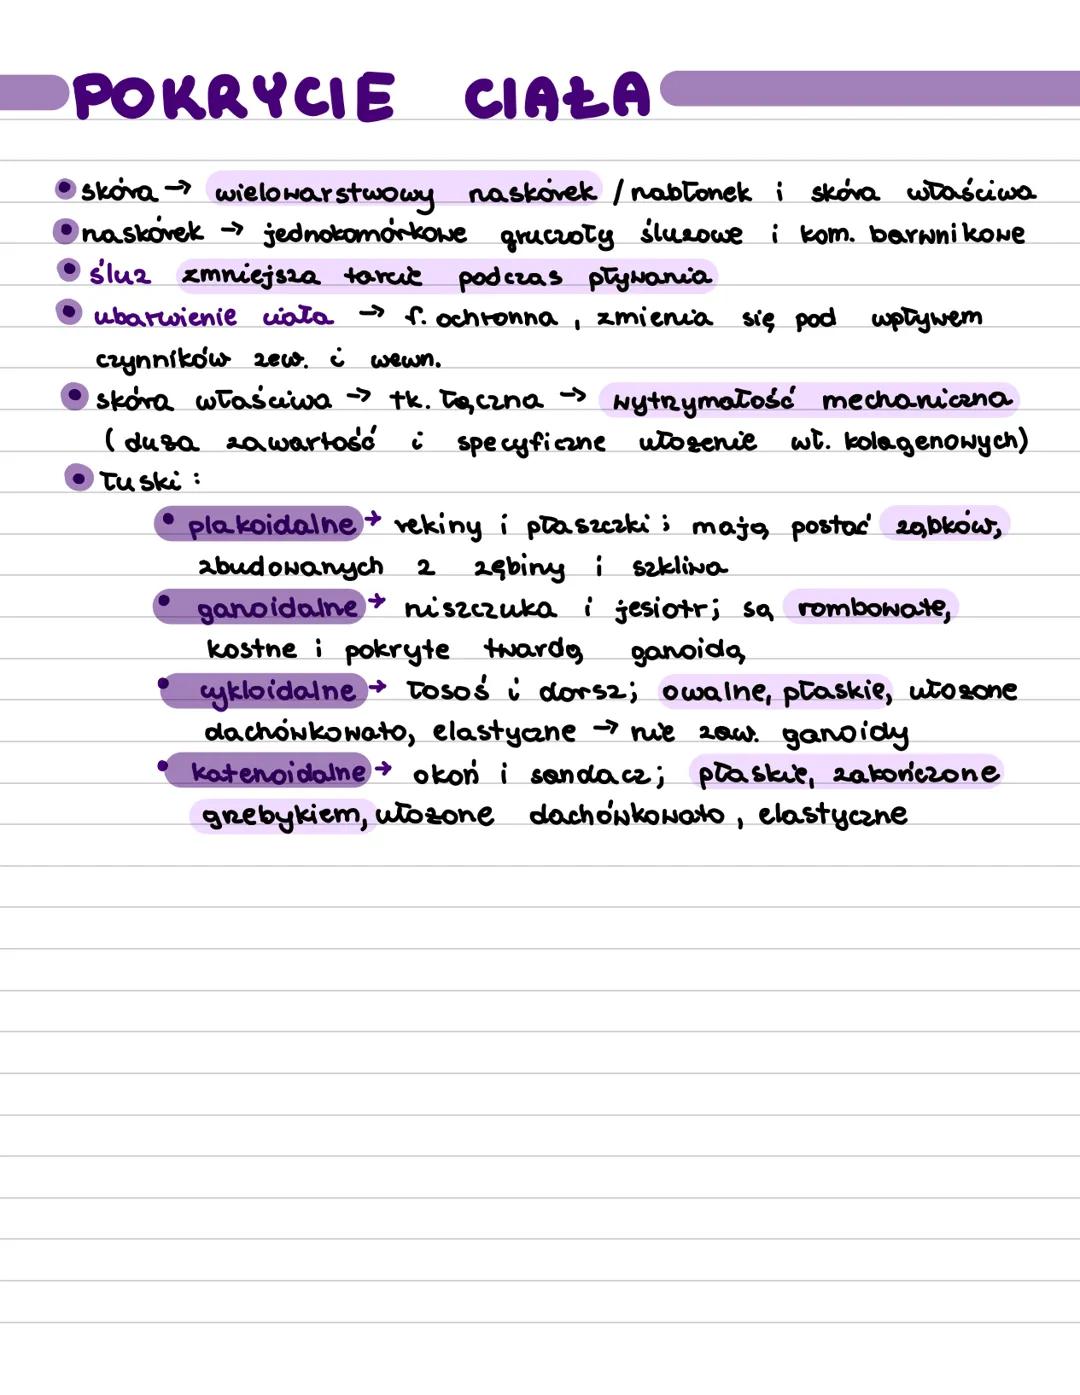 POKRYCIE CIAŁA
• skóra → wielowarstwowy naskórek / nabłonek i skóra właściwa
• naskórek → jednokomórkowe gruczoły śluzowe i kom. barwnikowe
• śluz zmniejsza tarcie podczas pływania
• ubarwienie ciała → f. ochronna, zmienia się pod wpływem
czynników zew. i wewn.
• skóra właściwa → tk. łączna → wytrzymałość mechaniczna
(duża zawartość i specyficzne ułożenie wł. kolagenowych)
• łuski:
• plakoidalne → rekiny i płaszczki; mają postać ząbków,
zbudowanych z zębiny i szkliwa
• ganoidalne → niszczuka i jesiotr; są rombowate,
kostne i pokryte twardą ganoidą
• cykloidalne → łosoś i dorsz; owalne, płaskie, ułożone
dachówkowato, elastyczne → nie zaw. ganoidy
• katenoidalne → okoń i sandacz; płaskie, zakończone
grzebykiem, ułożone dachówkowato, elastyczne